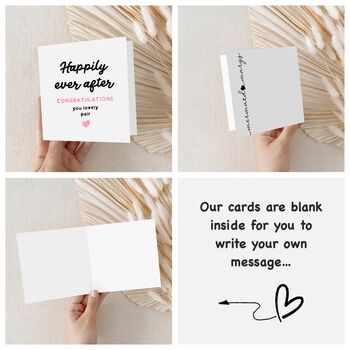 Happily
ever after
CONGRATULATIONS
you lovely
pair
mermaid marys
Our cards are blank
inside for you to
write your own
message...